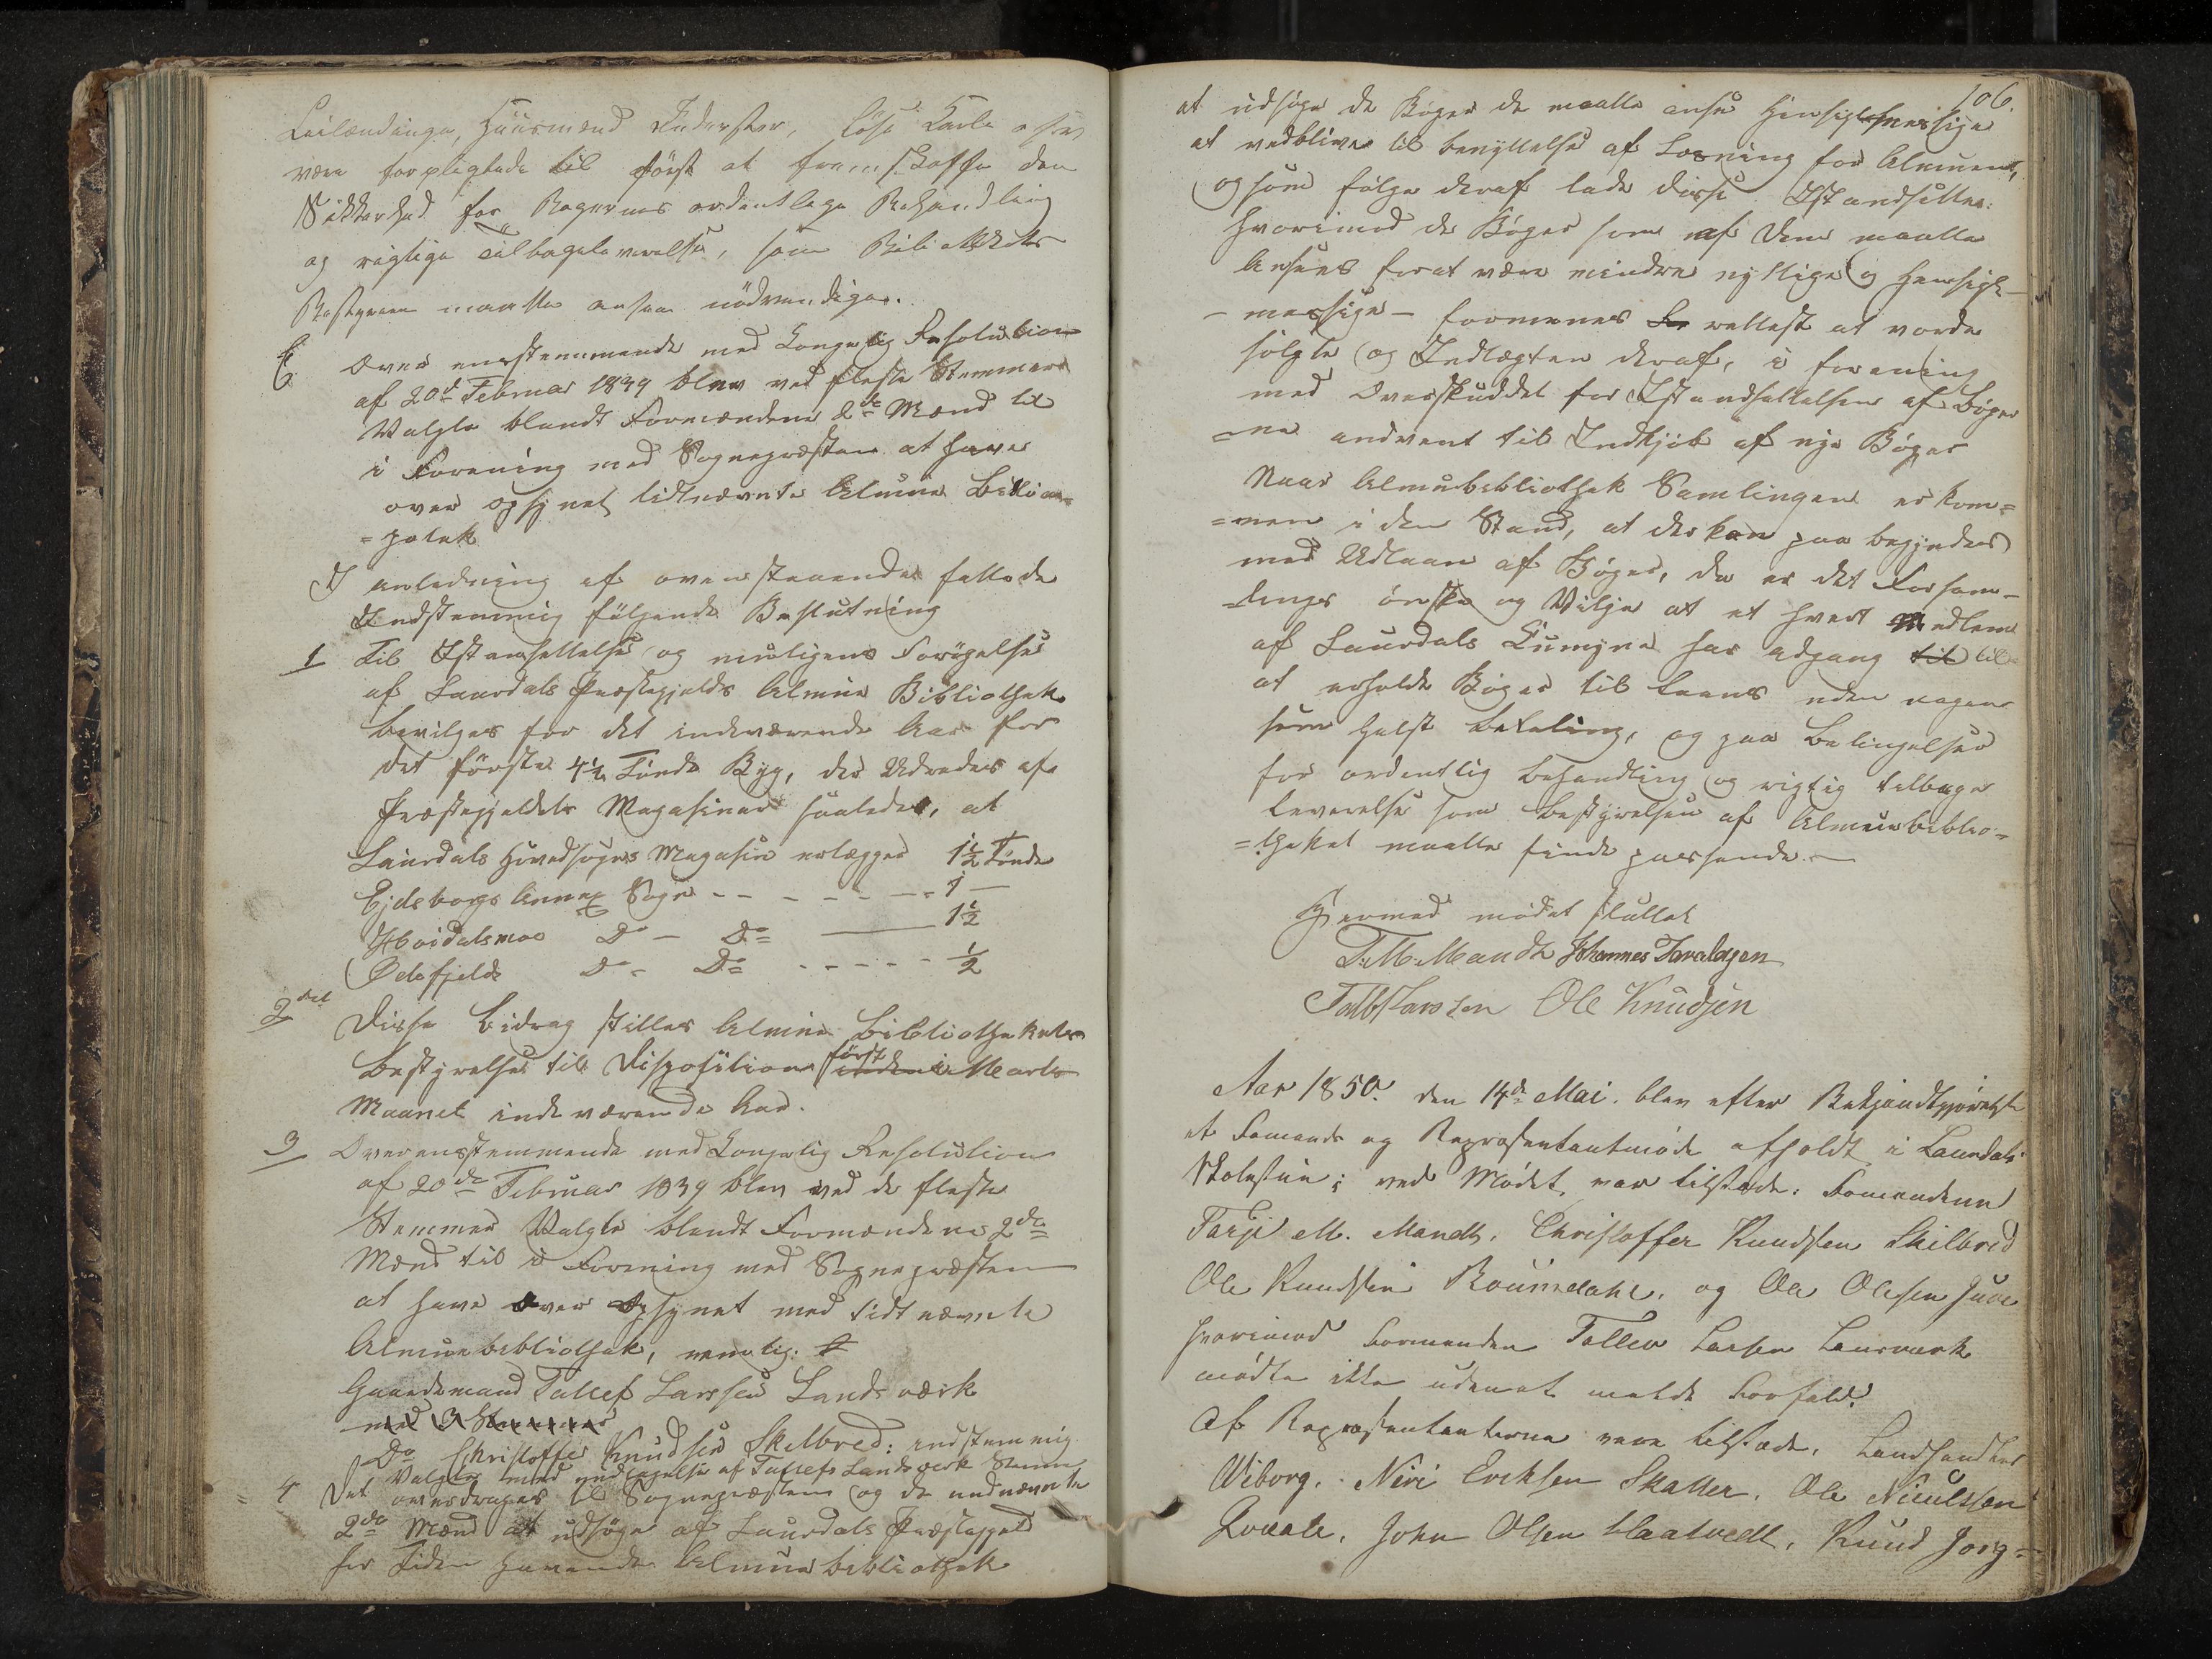 Leilændinge, Huusmænd Inderster, løse Karle osv
være forpligtede til først at fremskaffe den
Sikkerhed for Bøgernes ordentlige Behandling
og rigtige Tilbageleverelse, som Bibliothekets
Bestyrere maatte ansee nødvendige.
Over ensstemmende med Kongelig Resolution
af 20de Februar 1839 blev ved fleste Stemmer
Valgte blandt Formændene 2de Mænd til
i Forening med Sognepræsten at have
over opsynet tidtnævnte Almue
I anledning af ovenstaaende fattede
Eendstemmig følgende Beslutning
1 Til Istansettelse og muligens Forøgelse
af Laurdals Præstegjelds Almue Bibliothek
bevilges for det indeværende Aar for
det første 4½ Tønde Byg, der Udredes af
Præstegjeldets Magasiner saaledes, at
Laurdals Hovedsogns Magasin erlægger 1½ Tønde
Ejdsborgs Annex Sogn - - - - - - 1 —
Høidalsmoe Do — Do — 1½
Do - Do - - - - - ½
2det Disse Bidrag stilles Almue Bibliothekets
Bestyrelse til Disposition først inden i Marts
Maanet indeværende Aar.
3 Overensstemmende med Kongelig Resolution
af 20de Februar 1839 blev ved de fleste
Stemmer Valgte blandt Formændene 2de
Mænd til i Forening med Sognepræsten
at have Over Opsynet med tidtnævnte
Almuebibliothek, nemlig:
Gaardmand Tallef Larssen Landsværk
med 3 Stemmer
Do Christoffer Knudsen Skelbred: endstemmig
Valgte med undtagelse af Tallefs Landsværk Stemme
4 Det overdrages til Sognepræsten og de nednævnte
2de Mænd at udsøge af Laurdals Præstegjeld
for Tiden havende Almue bibliothek
106.
at udsøge de Bøger de maatte anse Hensigtsmessige
at vedblive til benyttelse af Læsning for Almuen,
og som følge deraf lade disse Istandsette:
hvorimod de Bøger som af dem maatte
Ansees forat være mindre nyttige og Hensigt-
-messige - formenes rettest at vorde
solgte og Indtægten deraf, i forening
med Overskuddet for Istandsettelsen af Bøger
=ne anvent til Indkjøb af nye Bøger
Naar Almuebibliothek Samlingen er kom=
=men i den Stand, at der kan paa begyndes
med Udlaan af Bøger, da er det Forsam-
-lings ønske og Vilje at et hvert Medlem
af Laurdals Kumyne har adgang til til
at erholde Bøger til laans uden nogen
som helst betaling, og paa Betingelser
for ordentlig behandling og rigtig tilbage
leverelse som Bestyrelsen af Almuebiblio=
=theket maatte finde passende. —
Hermed mødet sluttet
T. M. Mandt Johannes Taraldsen
Tallef Larssen Ole Knudsen
Aar 1850 den 14de Mai. blev efter Bekjendtgjørelse
et Formands og Repræsentantmøde afholdt i Laurdals
Skolestue; ved Mødet var tilstede: Formændene
Tarje M. Mandt, Christoffer Knudsen Skilbred
Ole Knudsen Roumdahl, og Ole Olesen Juve
hvorimod Formanden Tallev Larsen Lansværk
mødte ikke uden at melde Forfald.
Af Repræsentanterne vare tilstede, Landhandler
Wiborg. Niri Ericksen Skatter. Ole Niculssen
John Olsen Haatvedt, Knud Jørg=